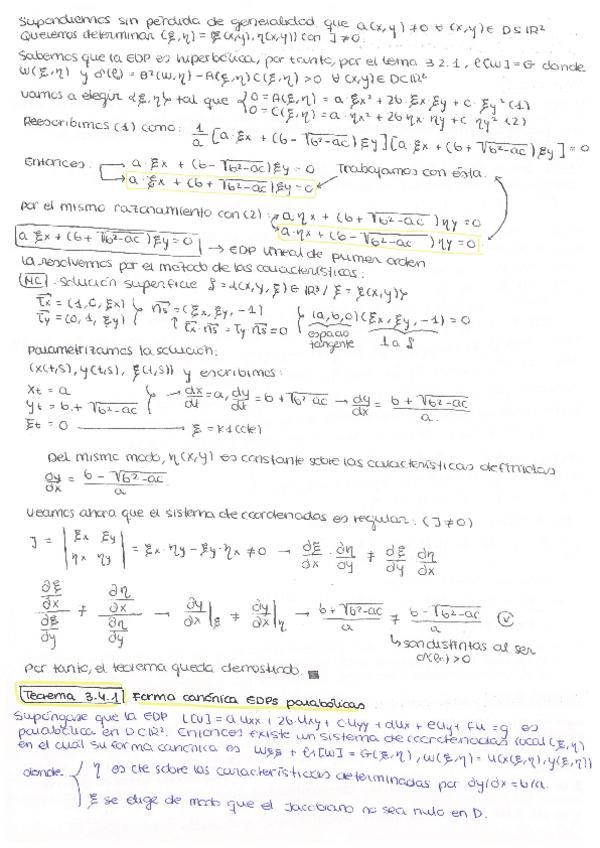 Supondremos sin pérdida de generalidad que a(x,y) ≠ 0 ∀ (x,y) ∈ D ⊆ ℝ²
Queremos determinar (ξ,η) = (ξ(x,y), η(x,y)) con J ≠ 0.
Sabemos que la EDP es hiperbólica, por tanto, por el lema 3.2.1, l[w] = G donde
w(ξ,η) y σ'(l) = B²(ξ,η) - A(ξ,η)C(ξ,η) > 0 ∀(x,y) ∈ D⊂ℝ²
vamos a elegir {ξ,η} tal que { 0 = A(ξ,η) = a·ξx² + 2b·ξx·ξy + c·ξy² (1)
0 = C(ξ,η) = a·ηx² + 2b·ηx·ηy + c·ηy² (2)
Reescribimos (1) como: 1/a [a·ξx + (b - √b²-ac) ξy] [a·ξx + (b + √b²-ac) ξy] = 0
Entonces: → a·ξx + (b - √b²-ac) ξy = 0
→ a·ξx + (b + √b²-ac) ξy = 0 Trabajamos con ésta.
por el mismo razonamiento con (2): → a·ηx + (b + √b²-ac) ηy = 0
→ a·ηx + (b - √b²-ac) ηy = 0
a ξx + (b + √b²-ac) ξy = 0 → EDP lineal de primer orden
la resolvemos por el método de las características:
MC. Solución superficie S = {(x,y,ξ) ∈ ℝ³ / ξ = ξ(x,y)}
τx = (1,0,ξx) } ns = (ξx, ξy, -1) } (a,b,0)(ξx, ξy, -1) = 0
τy = (0,1,ξy) τx·ns = τy·ns = 0 espacio tangente ⊥ a S
parametrizamos la solución:
(x(t,s), y(t,s), ξ(t,s)) y escribimos:
xt = a
yt = b + √b²-ac } → dx/dt = a, dy/dt = b + √b²-ac → dy/dx = b + √b²-ac / a
ξt = 0 → ξ = K1(cte)
Del mismo modo, η(x,y) es constante sobre las características definidas
dy/dx = b - √b²-ac / a
Veamos ahora que el sistema de coordenadas es regular: (J ≠ 0)
J = | ξx ξy | = ξx·ηy - ξy·ηx ≠ 0 → ∂ξ/∂x · ∂η/∂y ≠ ∂ξ/∂y · ∂η/∂x
| ηx ηy |
∂ξ/∂x / ∂ξ/∂y ≠ ∂η/∂x / ∂η/∂y → dy/dx|ξ ≠ dy/dx|η → b + √b²-ac / a ≠ b - √b²-ac / a ✓
↳ son distintas al ser
σ'(l) > 0
Por tanto, el teorema queda demostrado. ■
Teorema 3.4.1 Forma canónica EDPs parabólicas
Supóngase que la EDP L[u] = a uxx + 2b uxy + c uyy + d ux + e uy + f u = g es
parabólica en D⊂ℝ². Entonces existe un sistema de coordenadas local (ξ,η)
en el cual su forma canónica es wξξ + l1[w] = G(ξ,η), w(ξ,η) = u(x(ξ,η), y(ξ,η))
donde { η es cte sobre las características determinadas por dy/dx = b/a.
ξ se elige de modo que el Jacobiano no sea nulo en D.